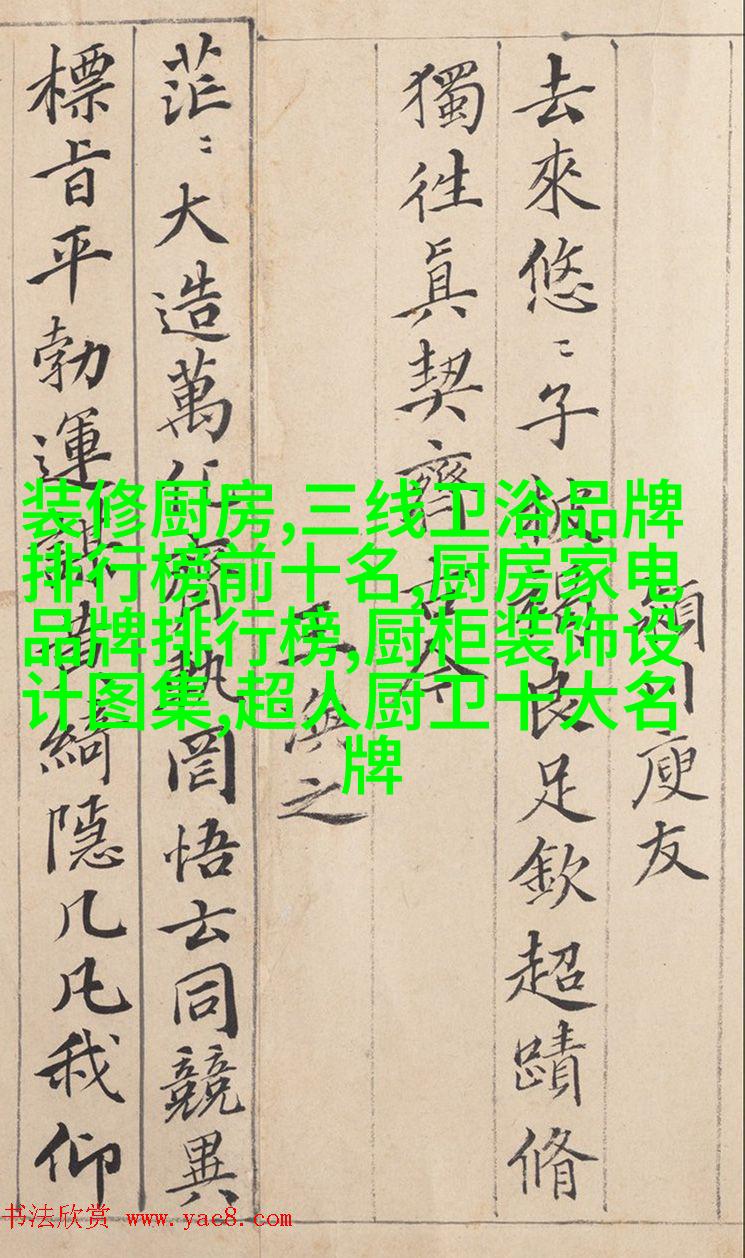 川庾友
去來悠〻子良足欽超蹟脩
獨往眞契齊古今
王渙之
茫〻大造萬化齊軌罔悟玄同競異
標旨平勃運黃綺隱几凡我仰
装修厨房,三线卫浴品牌
排行榜前十名,厨房家电
品牌排行榜,厨柜装饰设
计图集,超人厨卫十大名
牌
书法欣赏 www.yac8.com